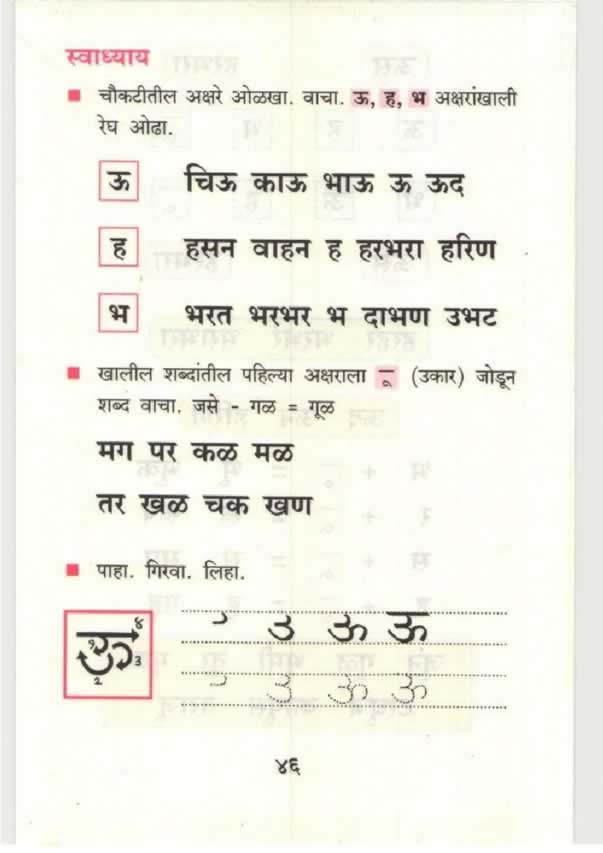 स्वाध्याय
चौकटीतील अक्षरे ओळखा. वाचा. ऊ, ह, भ अक्षरांखाली
रेघ ओढा.
ऊ चिऊ काऊ भाऊ ऊ ऊद
ह हसन वाहन ह हरभरा हरिण
भ भरत भरभर भ दाभण उभट
खालील शब्दांतील पहिल्या अक्षराला ू (उकार) जोडून
शब्द वाचा. जसे - गळ = गूळ
मग पर कळ मळ
तर खळ चक खण
पाहा. गिरवा. लिहा.
ऊ १ २ ३ ४
उ ऊ ऊ
उ ऊ ऊ
४६